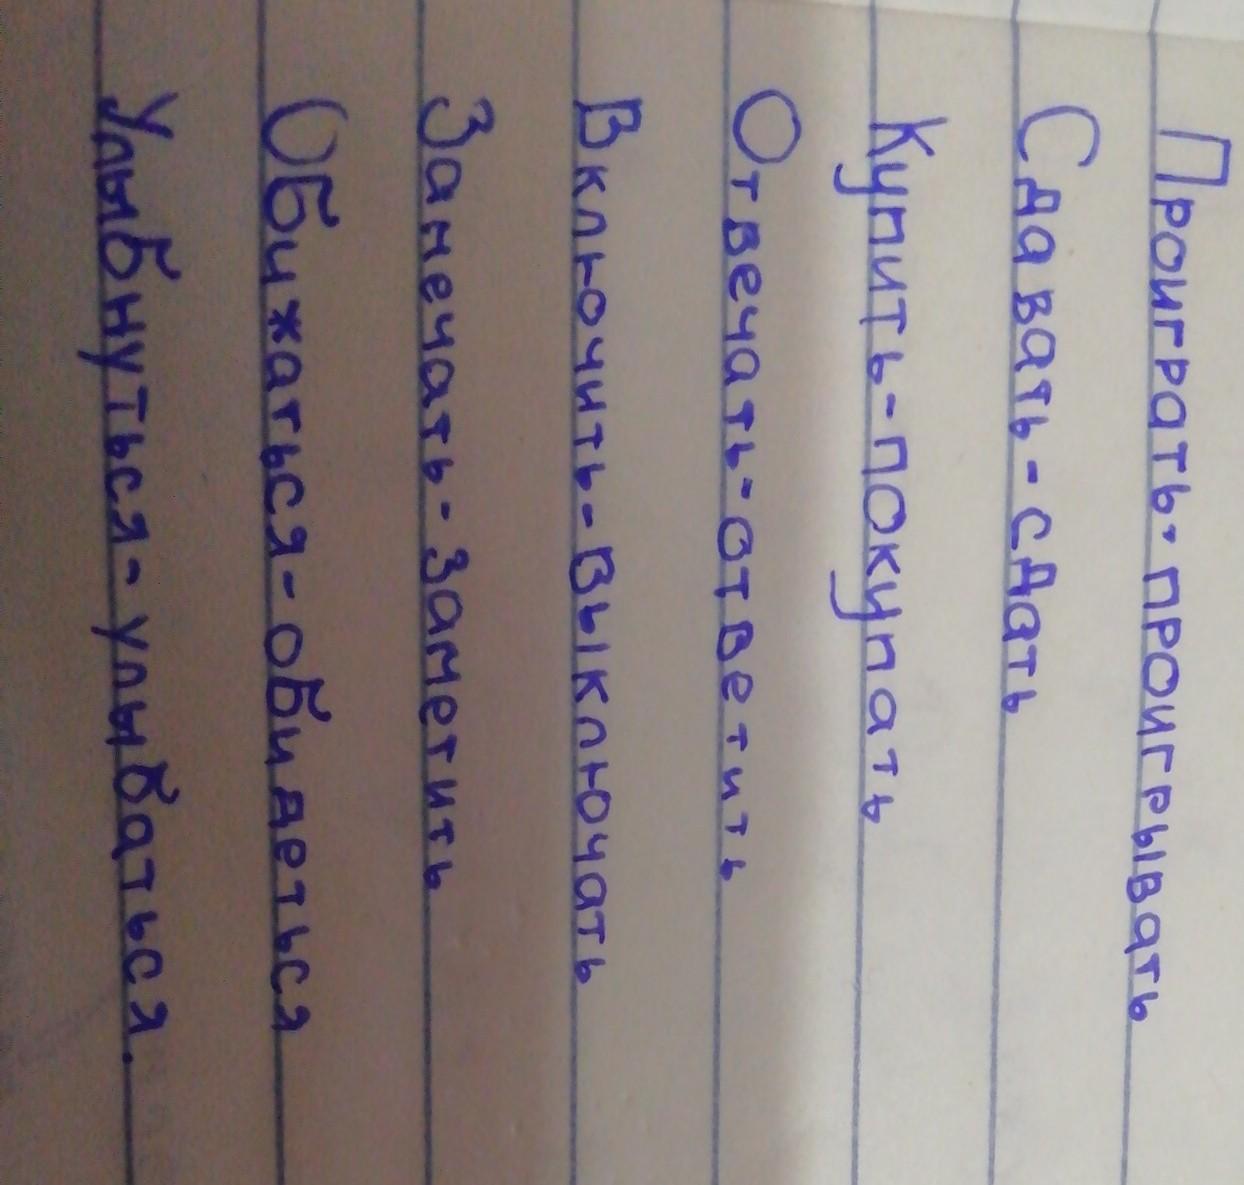 Проиграть-проигрывать
Сдавать-сдать
Купить-покупать
Отвечать-ответить
Включить-выключать
Замечать-заметить
Обижаться-обидеться
Улыбнуться-улыбаться.